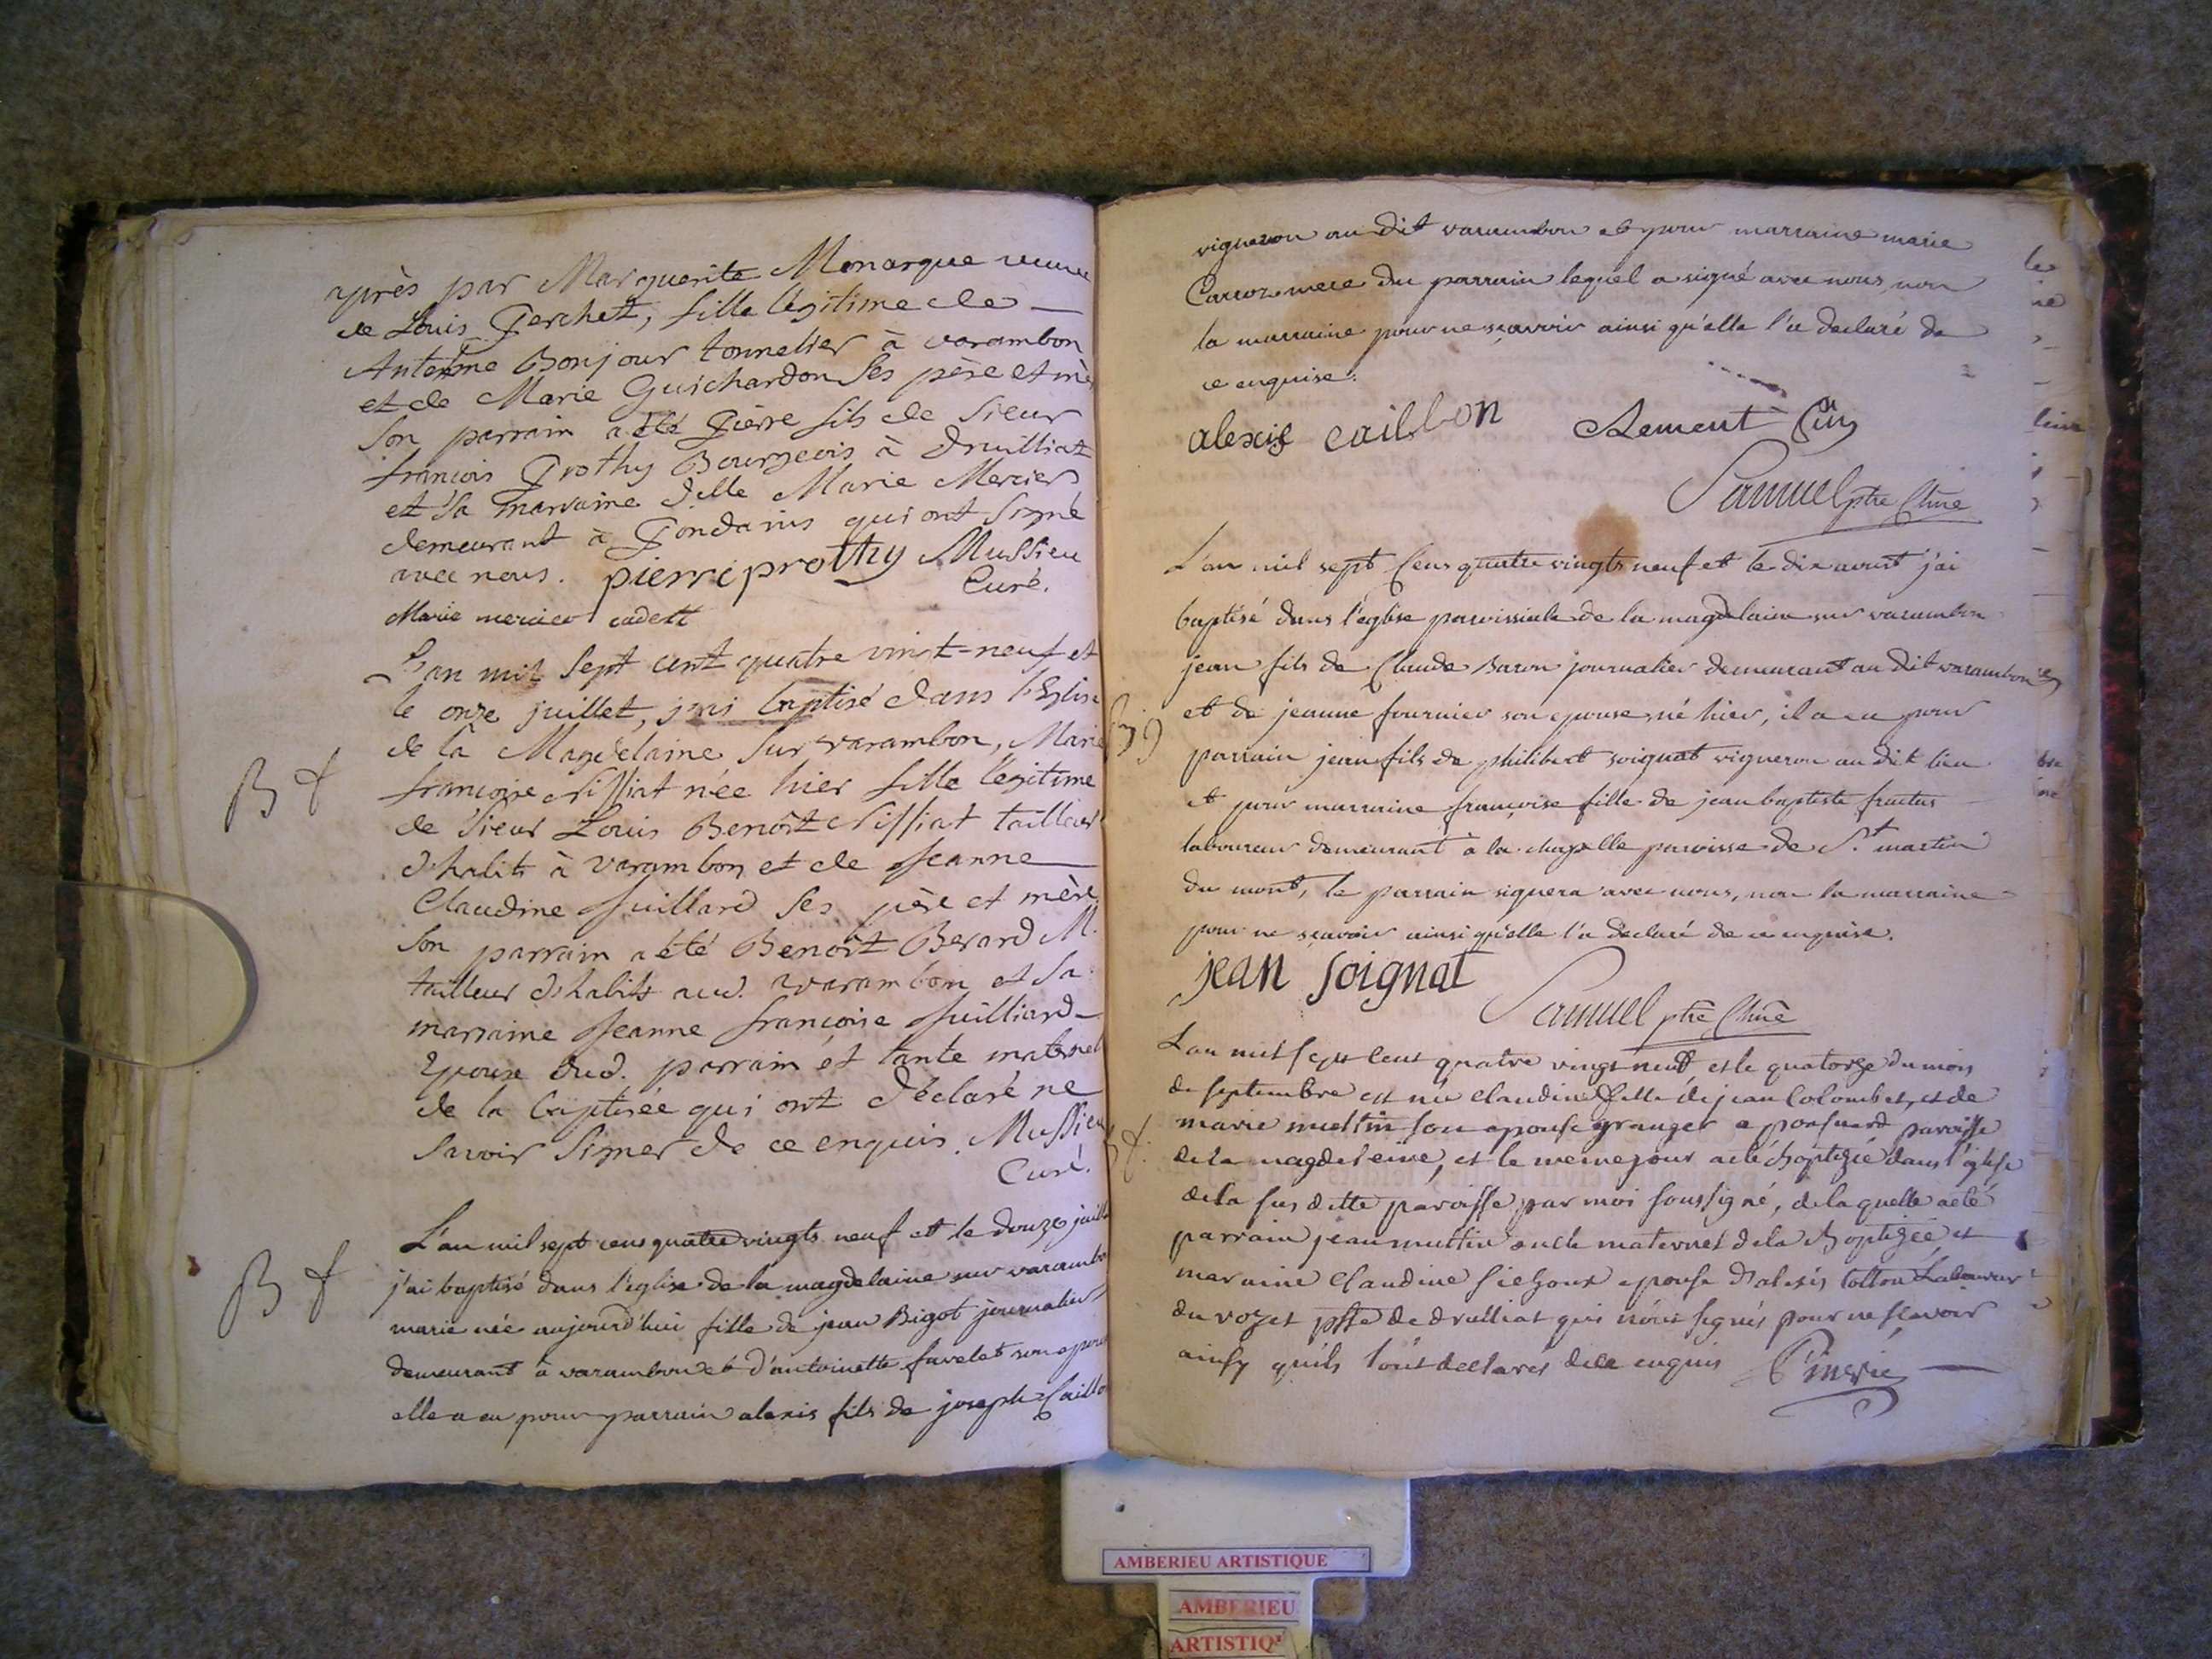 après par Marguerite Monarque veuve
de Louis Perchet, fille légitime de
Antenne Bonjour tonnelier à varambon
et de Marie Guichardon ses père et mè
son parrain a été Pierre fils de sieur
françois Prothy Bourgeois à Druilliat
et sa marraine dlle Marie Mercier
demeurant à Pondains qui ont signé
avec nous. pierre prothy Mussieu
Curé.
Marie mercier cadett
L'an mil sept cent quatre vint-neuf et
le onze juillet, j'ai baptisé dans l'Eglise
de la Magdelaine sur varambon, Marie
B
françoise née hier fille légitime
de sieur Louis Benoît tailleur
d'habits à varambon et de Jeanne
Claudine Juillard ses père et mère
son parrain a été Benoît Berard M.
tailleur d'habits aud. varambon et sa
marraine Jeanne françoise Juilliard
Epouse dud. parrain et tante maternel
de la baptisée qui ont déclaré ne
savoir signer de ce enquis. Mussieu
Curé.
L'an mil sept cens quatre vingts neuf et le douze juill
j'ai baptisé dans l'eglise de la magdelaine sur varambo
B
marie née aujourd'hui fille de jean Bigot journalier
demeurant à varambon et d'antoinette favelet son epou
elle a eu pour parrain alexis fils de joseph Caillo
vigneron au dit varambon et pour marraine marie
Carroz mere du parrain lequel a signé avec nous, non
la marraine pour ne sçavoir ainsi qu'elle l'a declaré de
ce enquise.
alexis caillon
Samuel ptre
L'an mil sept Cens quatre vingts neuf et le dix aoust j'ai
baptisé dans l'eglise paroissiale de la magdelaine sur varambon
jean fils de Claude Baron journalier demeurant au dit varambon
et de jeanne fournier son epouse, né hier, il a eu pour
parrain jean fils de philibert soignat vigneron au dit lieu
et pour marraine françoise fille de jean baptiste fructus
laboureur demeurant à la chapelle paroisse de St. martin
du mont, le parrain signera avec nous, non la marraine
pour ne sçavoir ainsi qu'elle l'a declaré de ce enquise.
jean soignat
Samuel ptre
L'an mil sept cent quatre vingt neuf et le quatorze du mois
de septembre est née claudine fille de jean Colombet, et de
marie son epouse granger a paroisse
de la magdeleine, et le meme jour a eté baptizée dans l'eglise
de la sus ditte paroisse par moi soussigné, de laquelle a eté
parrain jean oncle maternel de la baptizée et
maraine claudine epouse d'alexis Laboureur
du de drulliat qui n'ont signés pour ne scavoir
ainsy quils l'ont declarés de ce enquis
AMBERIEU ARTISTIQUE
AMBERIEU
ARTISTIQ